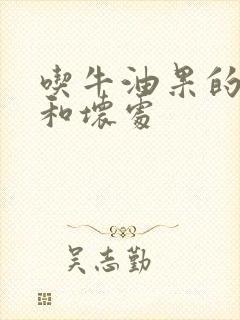 喫牛油果的
和壞處
吴志勤